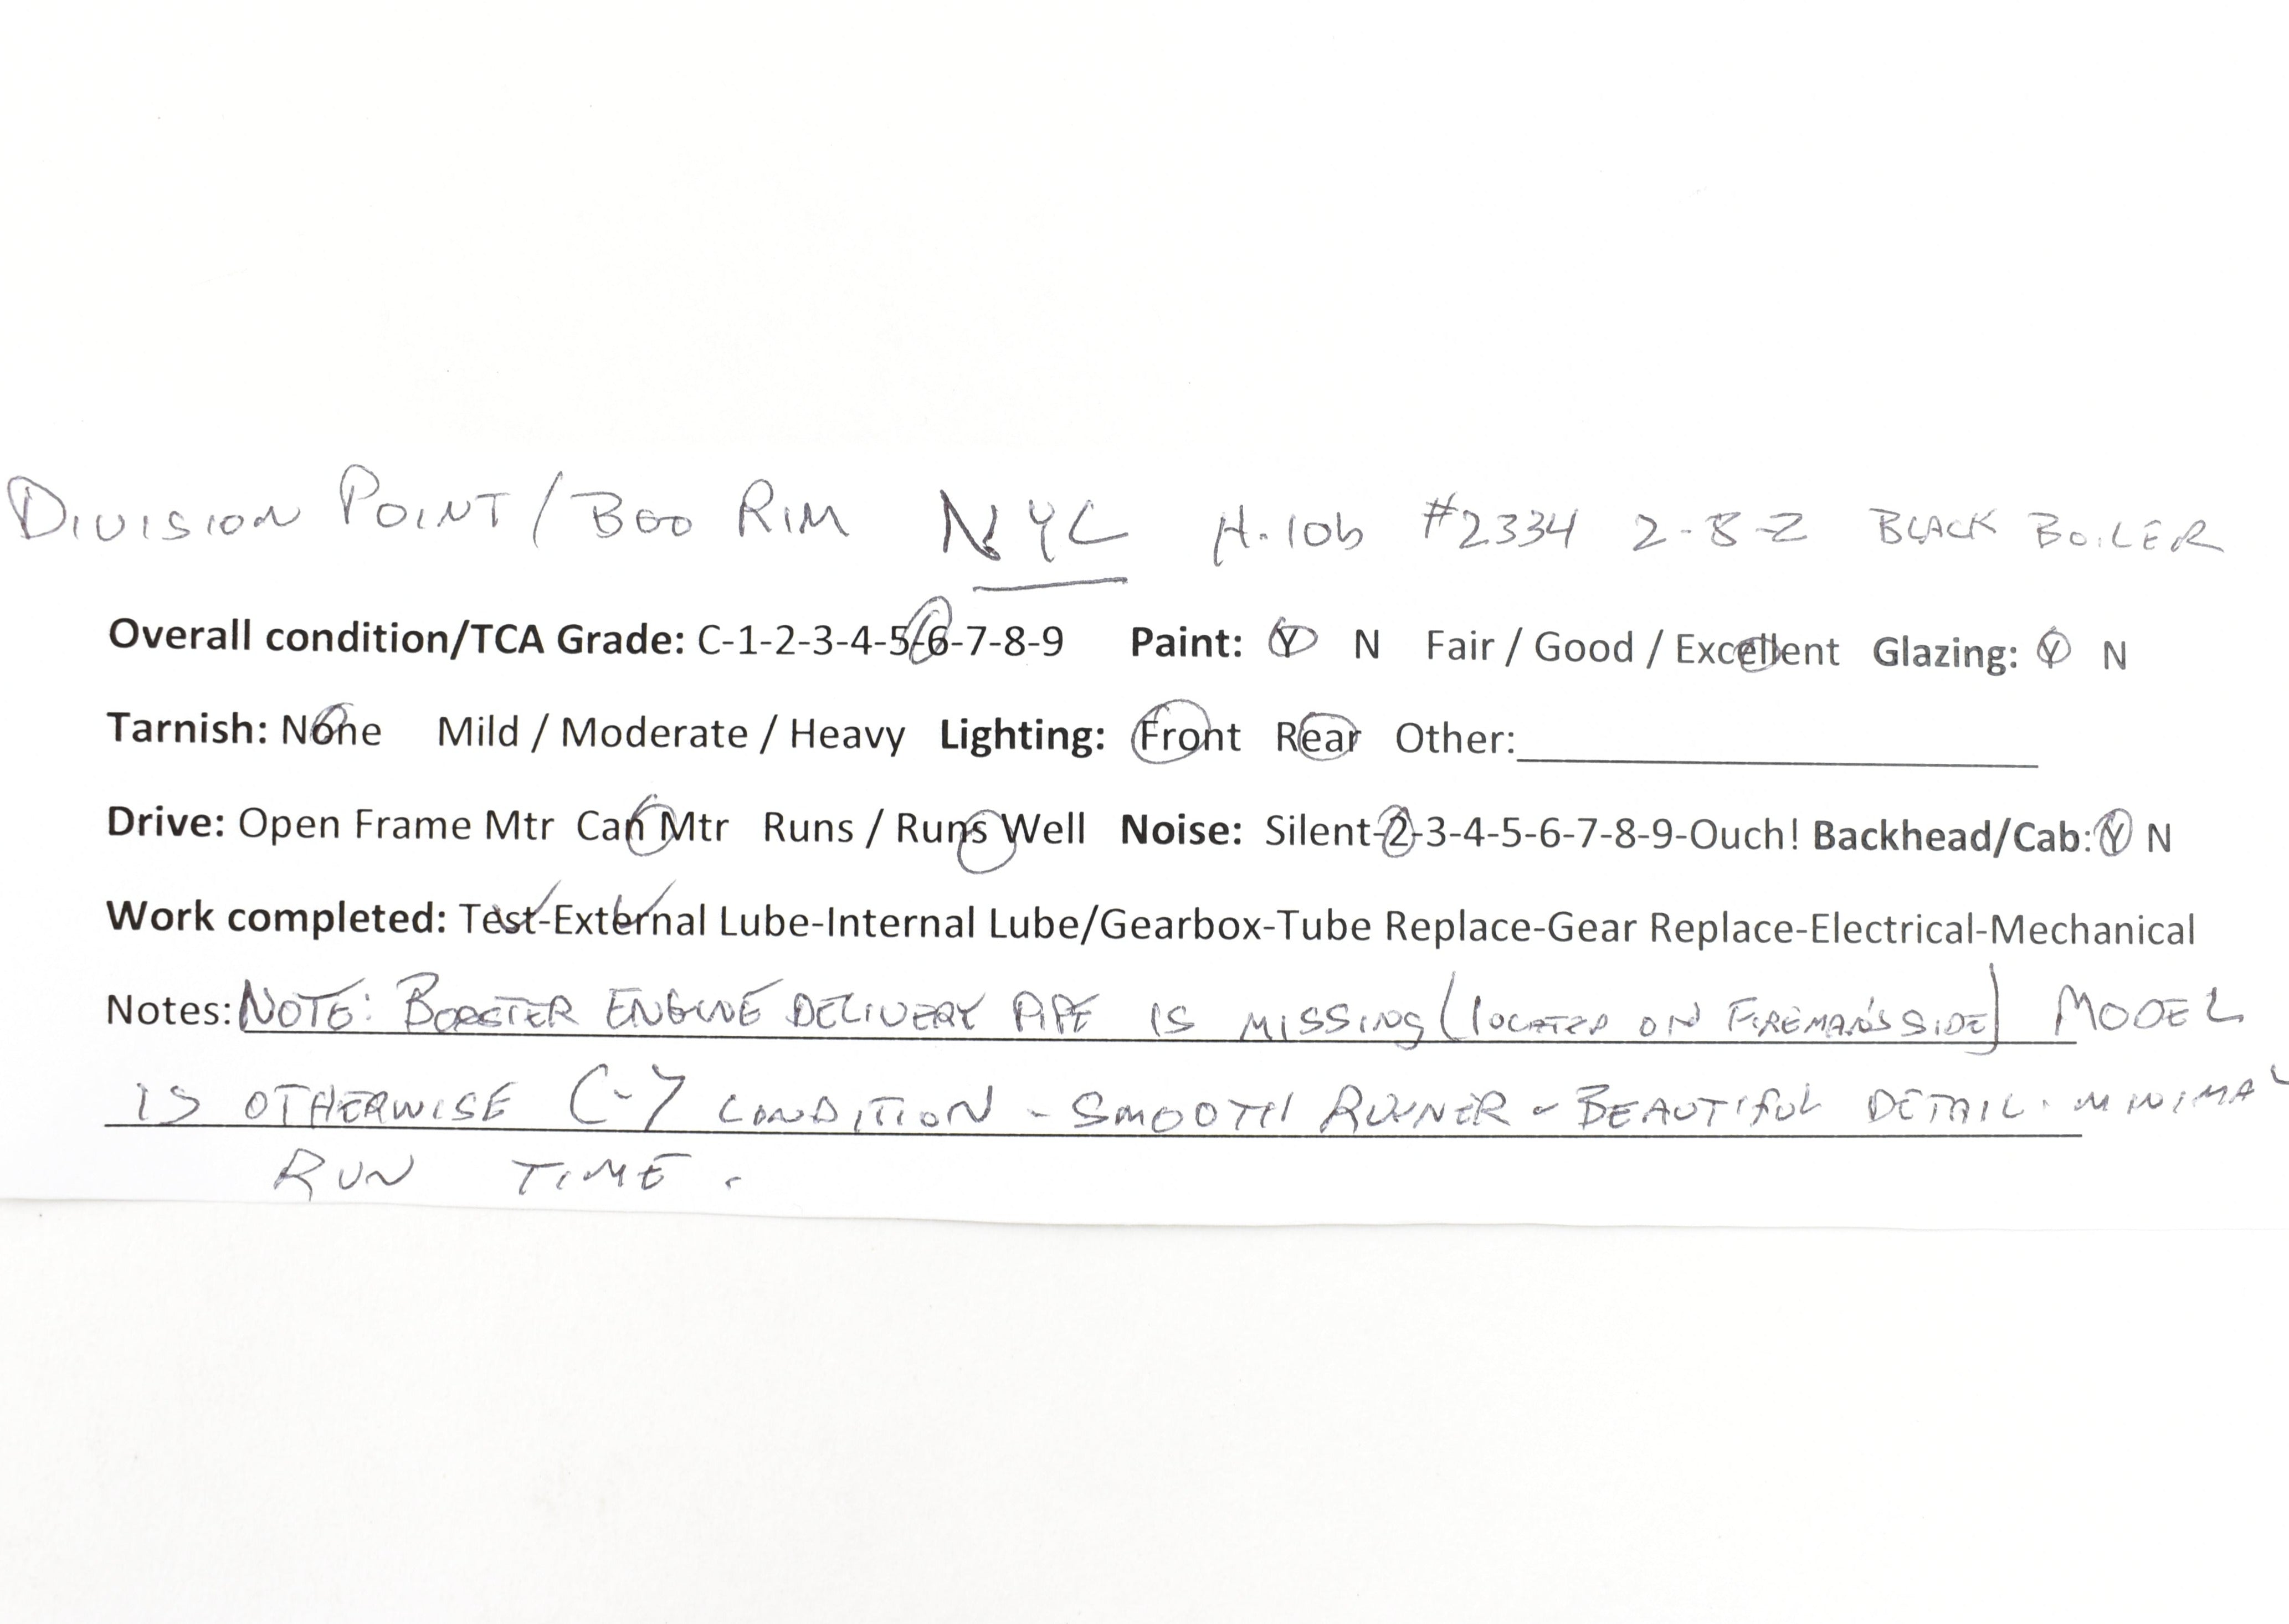 DIVISION POINT / BOO RIM NYC H-10b #2334 2-8-2 BLACK BOILER
Overall condition/TCA Grade: C-1-2-3-4-5-6-7-8-9 Paint: Y N Fair / Good / Excellent Glazing: Y N
Tarnish: None Mild / Moderate / Heavy Lighting: Front Rear Other:
Drive: Open Frame Mtr Can Mtr Runs / Runs Well Noise: Silent-2-3-4-5-6-7-8-9-Ouch! Backhead/Cab: Y N
Work completed: Test-External Lube-Internal Lube/Gearbox-Tube Replace-Gear Replace-Electrical-Mechanical
Notes: NOTE: BOOSTER ENGINE DELIVERY PIPE IS MISSING (LOCATED ON FIREMAN'S SIDE) MODEL
IS OTHERWISE C-7 CONDITION - SMOOTH RUNNER - BEAUTIFUL DETAIL. MINIMAL
RUN TIME.